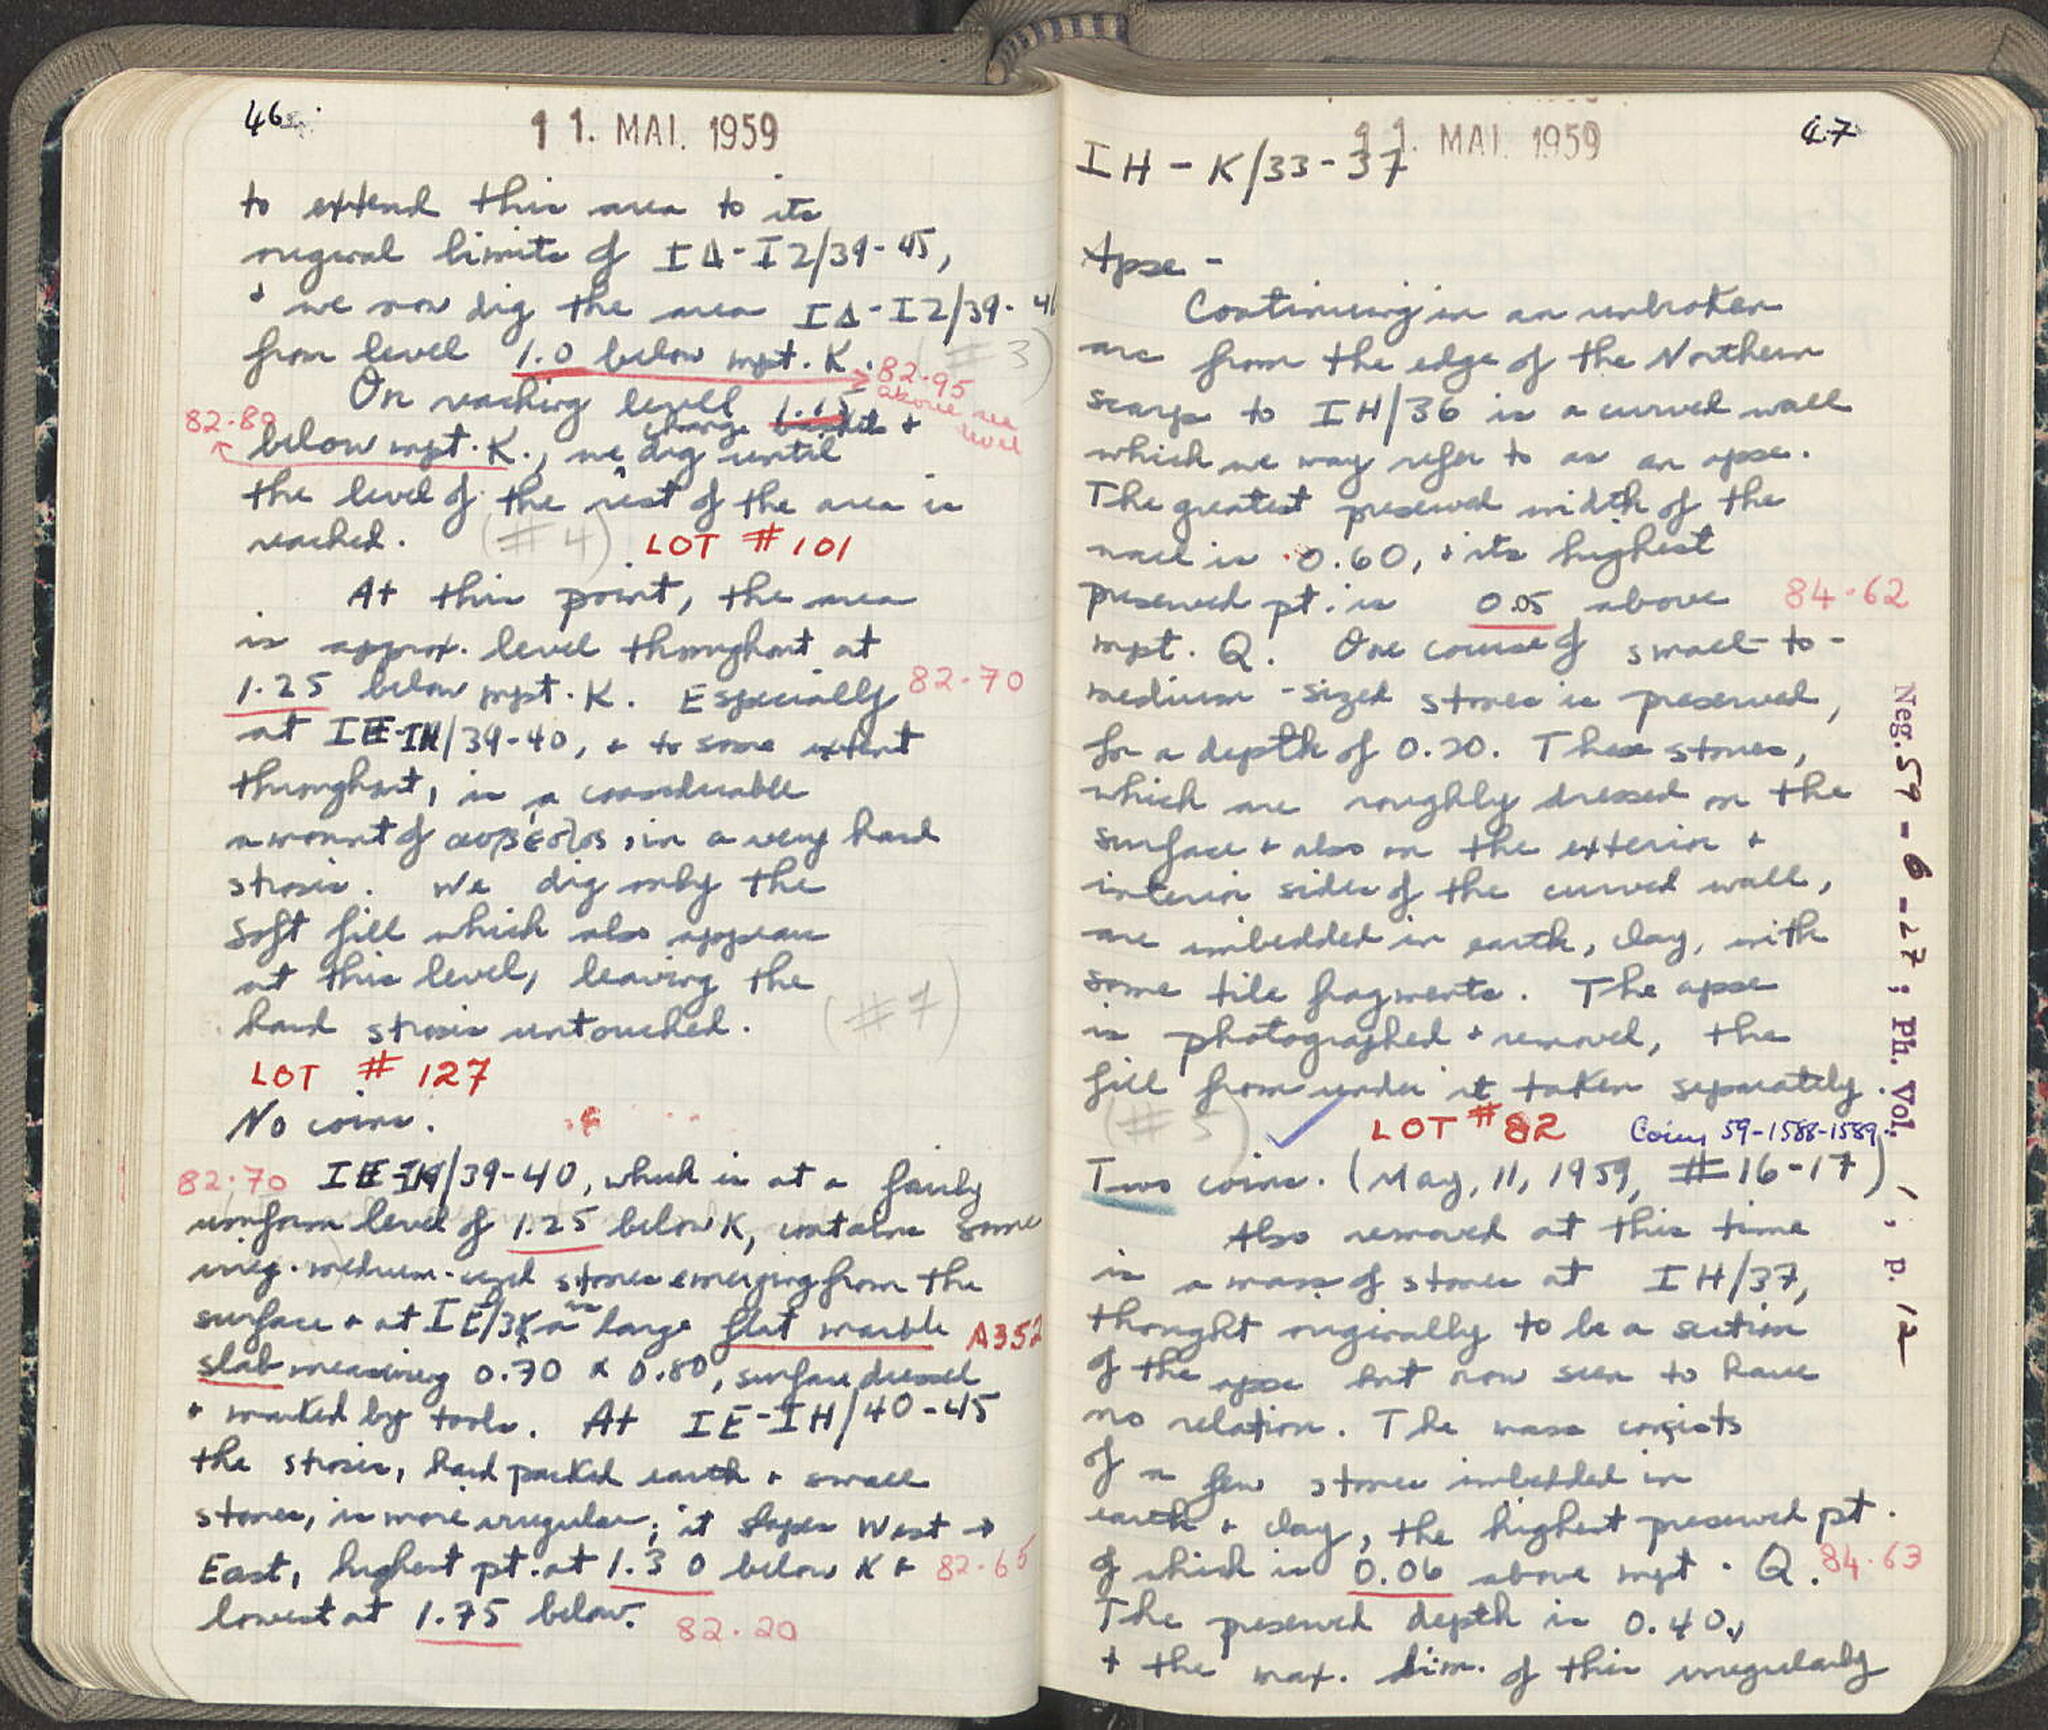 46
11. MAI. 1959
to extend this area to its
original limits of IΔ-IZ/39-45,
+ we now dig the area IΔ-IZ/39-
from level 1.0 below mpt. K. (#3)
82.95
above sea
level
On reaching level
82.80
change baskets +
below mpt. K., we dig until
the level of the rest of the area is
reached. (#4) LOT #101
At this point, the area
is approx. level throughout at
1.25 below mpt. K. Especially 82.70
at IE-IH/39-40, + to some extent
throughout, is a considerable
amount of ασβέστος, in a very hard
strosis. We dig only the
soft fill which also appears
at this level, leaving the
hard strosis untouched.
LOT # 127
No coins.
82.70 IE-IH/39-40, which is at a fairly
uniform level of 1.25 below K, contains some
irreg. medium-sized stones emerging from the
surface + at large flat marble A352
slab measuring 0.70 x 0.80, surface dressed
+ marked by tools. At IE-IH/40-45
the strosis, hard packed earth + small
stones, is more irregular; it slopes West →
East, highest pt. at 1.30 below K + 82.65
lowest at 1.75 below. 82.20
47
11. MAI. 1959
IH-K/33-37
Apse -
Continuing in an unbroken
arc from the edge of the Northern
scarp to IH/36 is a curved wall
which we may refer to as an apse.
The greatest preserved width of the
wall is 0.60, + its highest
preserved pt. is 0.05 above 84.62
mpt. Q. One course of small-to-
medium-sized stones is preserved,
for a depth of 0.20. These stones,
which are roughly dressed on the
surface + also on the exterior +
interior sides of the curved wall,
are imbedded in earth, clay, with
some tile fragments. The apse
is photographed + removed, the
fill from under it taken separately.
(#5) LOT #82 Coins 59-1588-1589
Two coins. (May, 11, 1959, #16-17)
Also removed at this time
is a mass of stones at IH/37,
thought originally to be a section
of the apse but now seen to have
no relation. The mass consists
of a few stones imbedded in
earth + clay, the highest preserved pt.
of which is 0.06 above mpt. Q. 84.63
The preserved depth is 0.40,
+ the max. dim. of this irregularly
Neg. 59-6-27; Ph. Vol. 1, p. 12